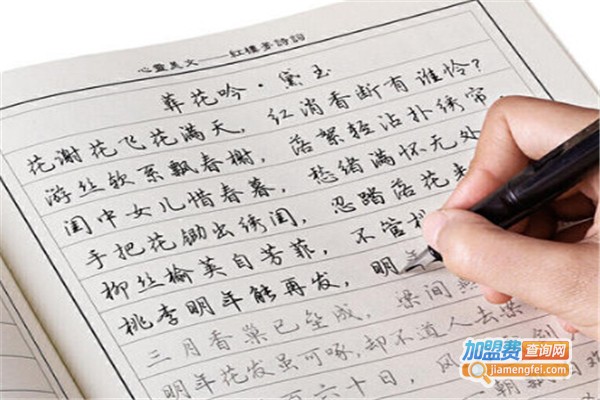 心靈美文——紅樓夢詩詞
葬花吟·黛玉
花谢花飞花满天，红消香断有谁怜？
游丝软系飘春榭，落絮轻沾扑绣帘，
闺中女儿惜春暮，愁绪满怀无处
手把花锄出绣闺，忍踏落花来
柳丝榆荚自芳菲，不管
桃李明年能再发，明
三月香巢已垒成，梁间燕
明年花发虽可啄，却不道人去梁
百六十日，风
一朝飘
加盟费查询网
jiamengfei.com